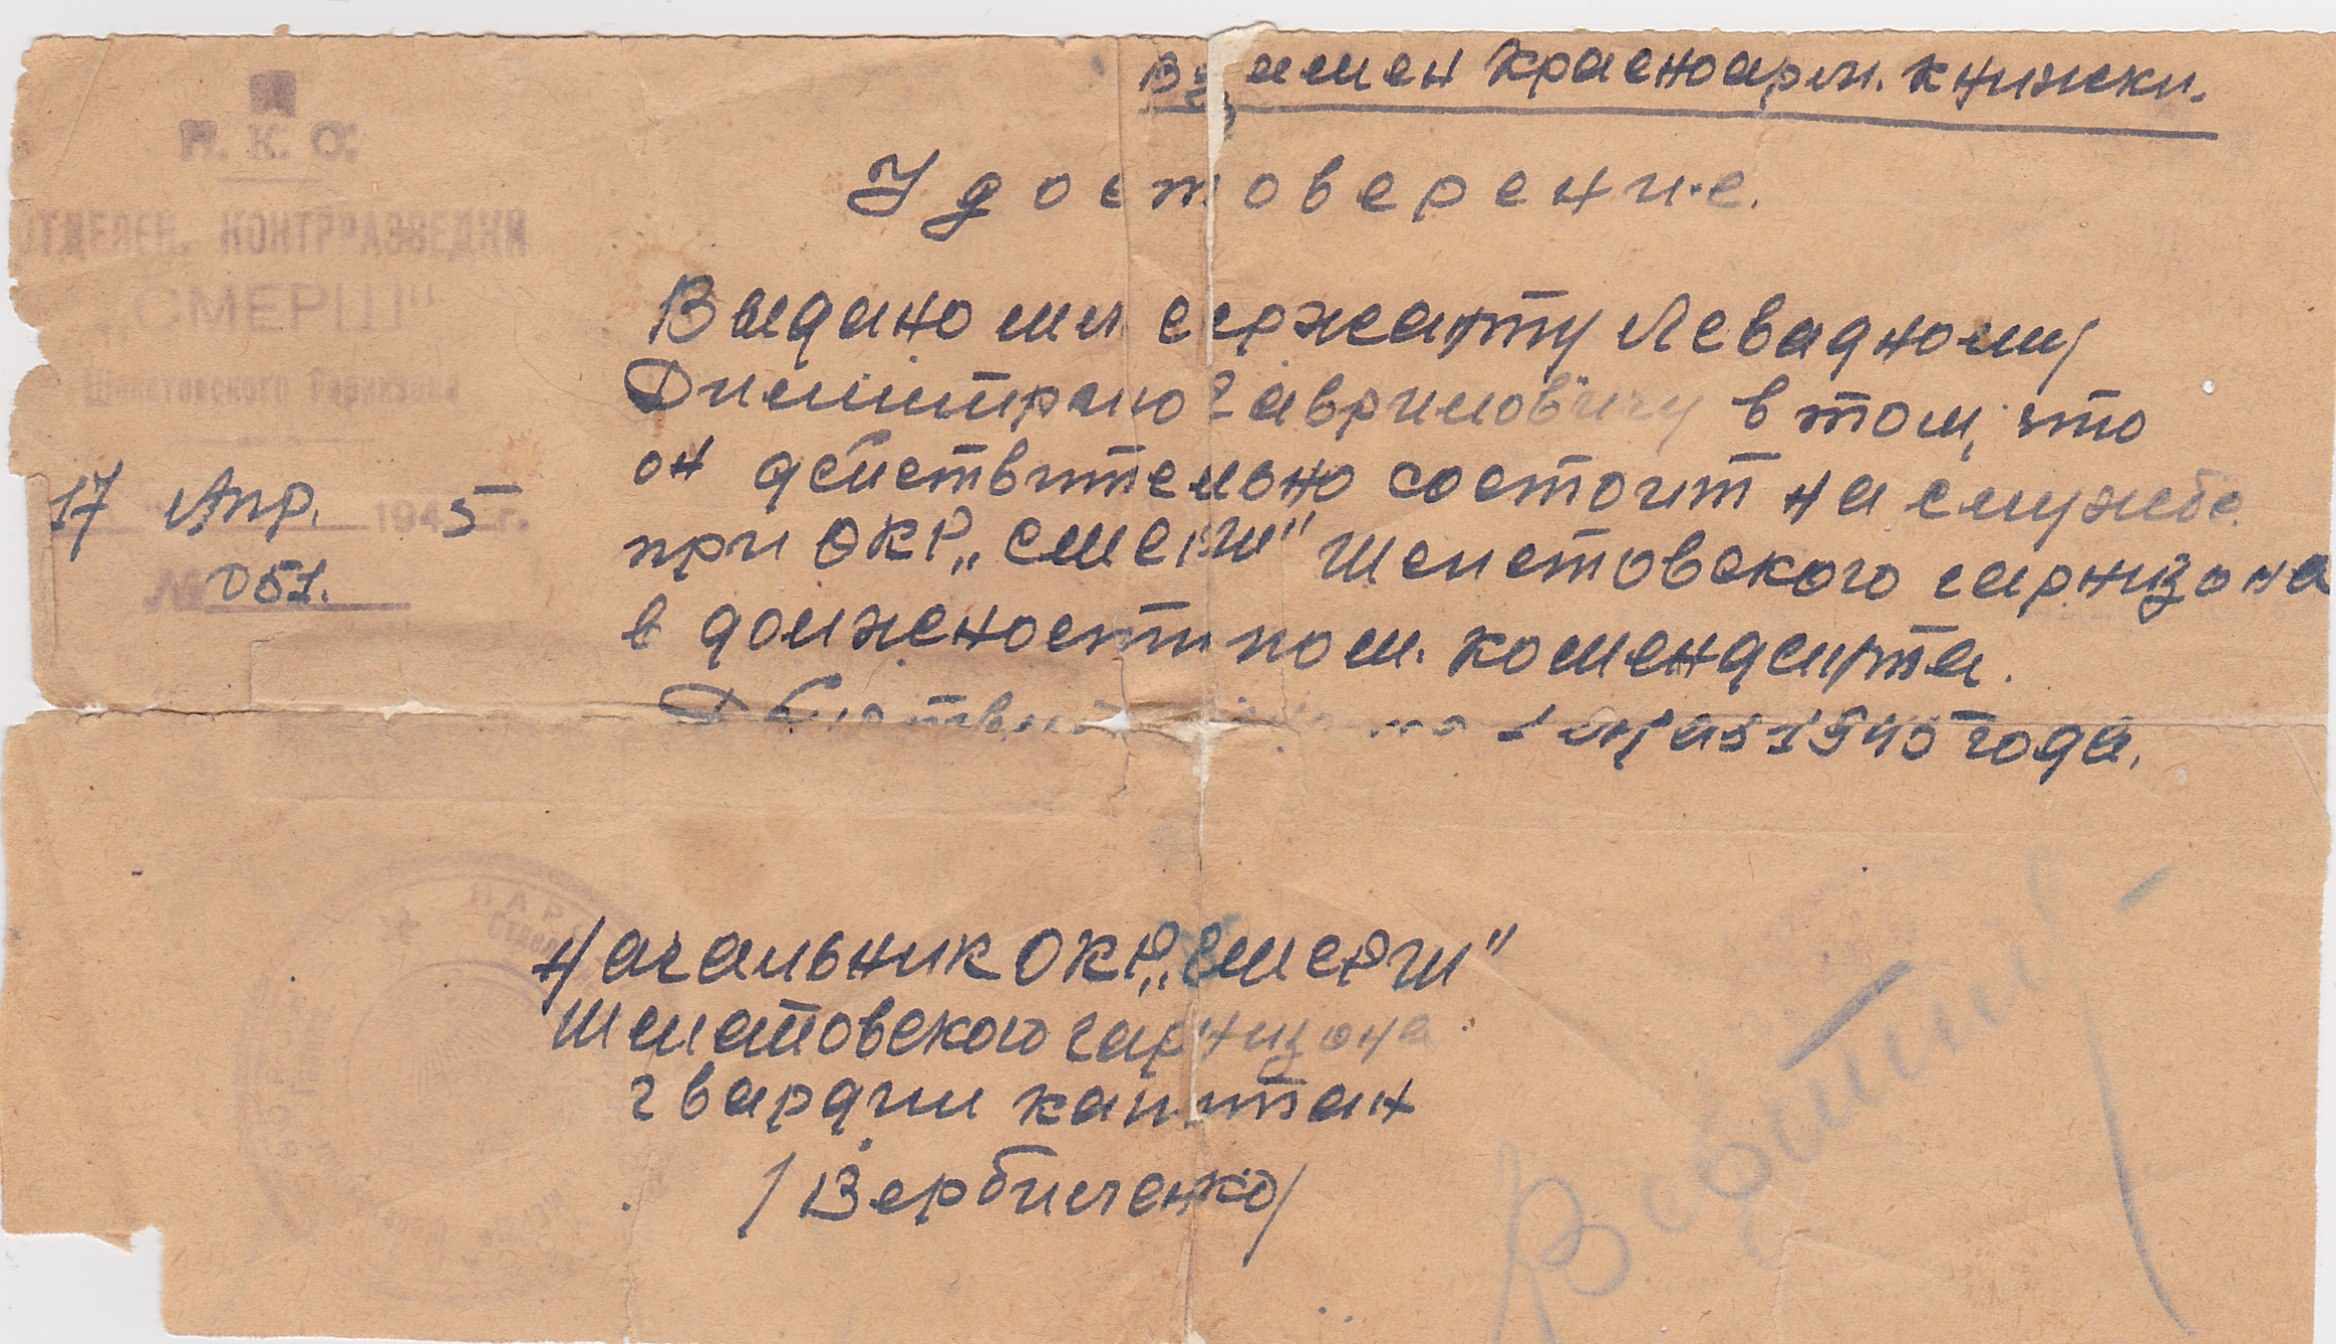 Взамен Красноарм. книжки.
Н. К. О.
ОТДЕЛЕН. КОНТРРАЗВЕДКИ
„СМЕРШ"
Шепетовского Гарнизона
17 Апр. 1945 г.
№ 051.
Удостоверение.
Выдано мл сержанту Левадному
Дмитрию Гавриловичу в том, что
он действительно состоит на службе
при ОКР „Смерш" Шепетовского гарнизона
в должности пом. коменданта.
Действительно по 1 мая 1945 года.
Начальник ОКР „Смерш"
Шепетовского гарнизона
гвардии капитан
/Вербиченко/
НАРО